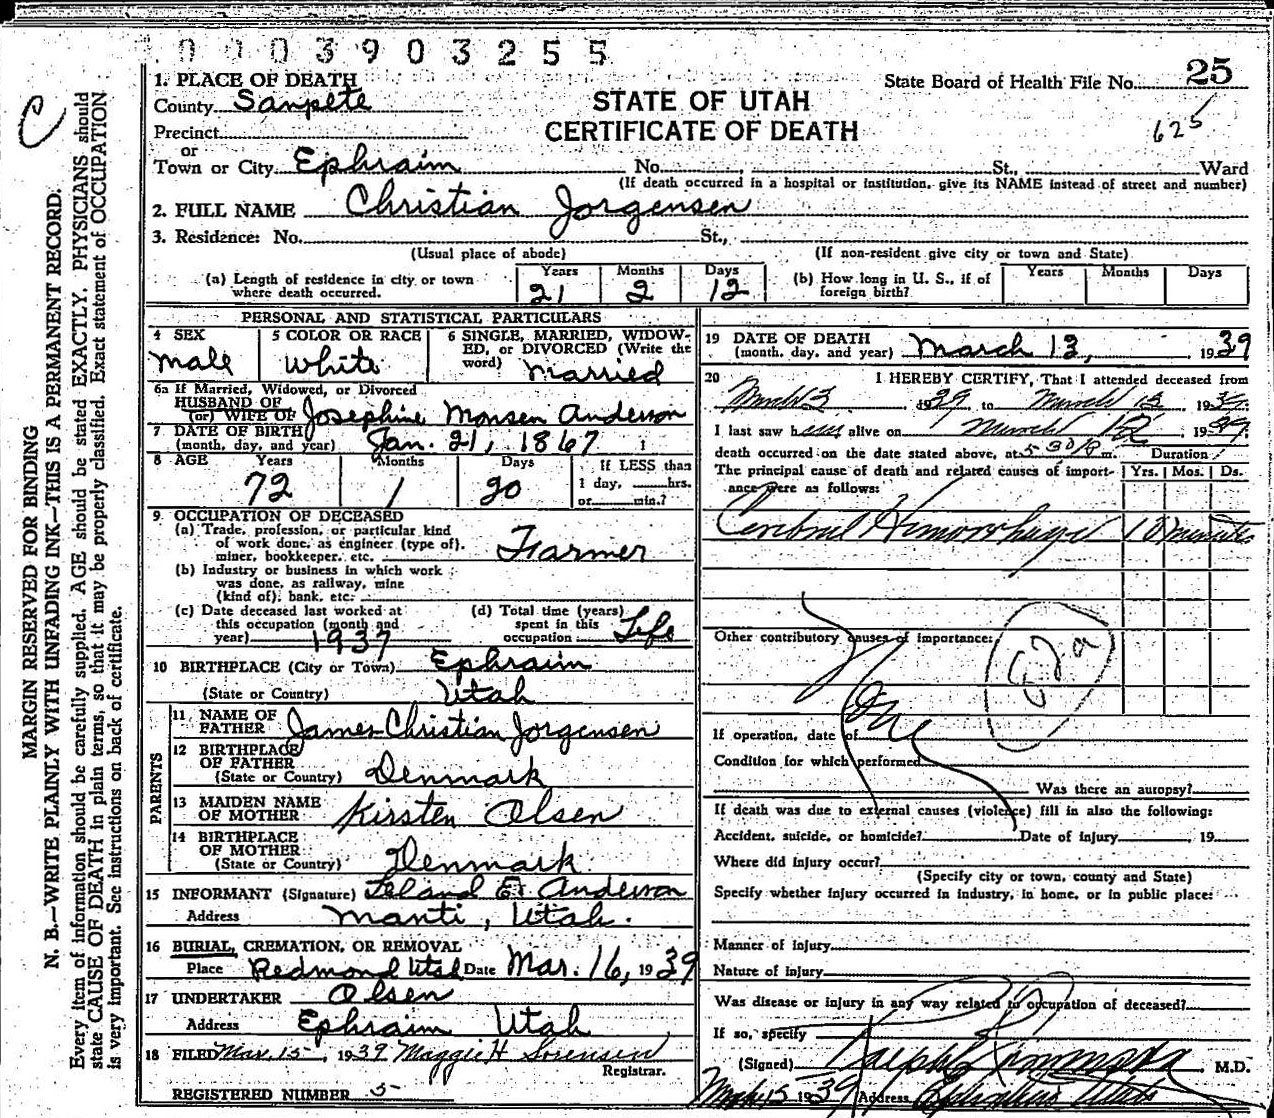 0003903255
1. PLACE OF DEATH
State Board of Health File No. 25
County Sanpete
STATE OF UTAH
625
Precinct
CERTIFICATE OF DEATH
or
Town or City Ephraim No. , St., Ward
(If death occurred in a hospital or institution, give its NAME instead of street and number)
2. FULL NAME Christian Jorgensen
3. Residence: No. St.,
(Usual place of abode) (If non-resident give city or town and State)
(a) Length of residence in city or town where death occurred. Years 21 Months 2 Days 12
(b) How long in U. S., if of foreign birth? Years Months Days
PERSONAL AND STATISTICAL PARTICULARS
4 SEX male
5 COLOR OR RACE White
6 SINGLE, MARRIED, WIDOW-
ED, or DIVORCED (Write the
word) Married
6a If Married, Widowed, or Divorced
HUSBAND OF
(or) WIFE OF Josephine Monsen Anderson
7 DATE OF BIRTH
(month, day, and year) Jan. 21, 1867
8 AGE Years 72 Months 1 Days 20
If LESS than
1 day, hrs.
or min.?
9 OCCUPATION OF DECEASED
(a) Trade, profession, or particular kind
of work done, as engineer (type of),
miner, bookkeeper, etc. Farmer
(b) Industry or business in which work
was done, as railway, mine
(kind of), bank, etc.
(c) Date deceased last worked at
this occupation (month and
year) 1937
(d) Total time (years)
spent in this
occupation Life
10 BIRTHPLACE (City or Town) Ephraim
(State or Country) Utah
PARENTS
11 NAME OF
FATHER James Christian Jorgensen
12 BIRTHPLACE
OF FATHER
(State or Country) Denmark
13 MAIDEN NAME
OF MOTHER Kirsten Olsen
14 BIRTHPLACE
OF MOTHER
(State or Country) Denmark
15 INFORMANT (Signature) Leland E. Anderson
Address Manti, Utah.
16 BURIAL, CREMATION, OR REMOVAL
Place Redmond Utah Date Mar. 16, 1939
17 UNDERTAKER Olsen
Address Ephraim Utah
18 FILED Mar. 15, 1939 Maggie H Sorensen
Registrar.
REGISTERED NUMBER 5
19 DATE OF DEATH
(month, day, and year) March 13, 1939
20 I HEREBY CERTIFY, That I attended deceased from
March 3 1939 to March 13 1939.
I last saw him alive on March 1939
death occurred on the date stated above, at 5 30 P m. Duration
The principal cause of death and related causes of import-
ance were as follows: Yrs. Mos. Ds.
Cerebral Hemorrhage 10 minutes
Other contributory causes of importance:
None
82a
If operation, date of
Condition for which performed
Was there an autopsy?
If death was due to external causes (violence) fill in also the following:
Accident, suicide, or homicide? Date of injury , 19
Where did injury occur?
(Specify city or town, county and State)
Specify whether injury occurred in industry, in home, or in public place:
Manner of injury
Nature of injury
Was disease or injury in any way related to occupation of deceased?
If so, specify
(Signed) M.D.
March 15 1939 Address Ephraim Utah
C
MARGIN RESERVED FOR BINDING
N. B.—WRITE PLAINLY WITH UNFADING INK—THIS IS A PERMANENT RECORD.
Every item of information should be carefully supplied. AGE should be stated EXACTLY. PHYSICIANS should
state CAUSE OF DEATH in plain terms, so that it may be properly classified. Exact statement of OCCUPATION
is very important. See instructions on back of certificate.